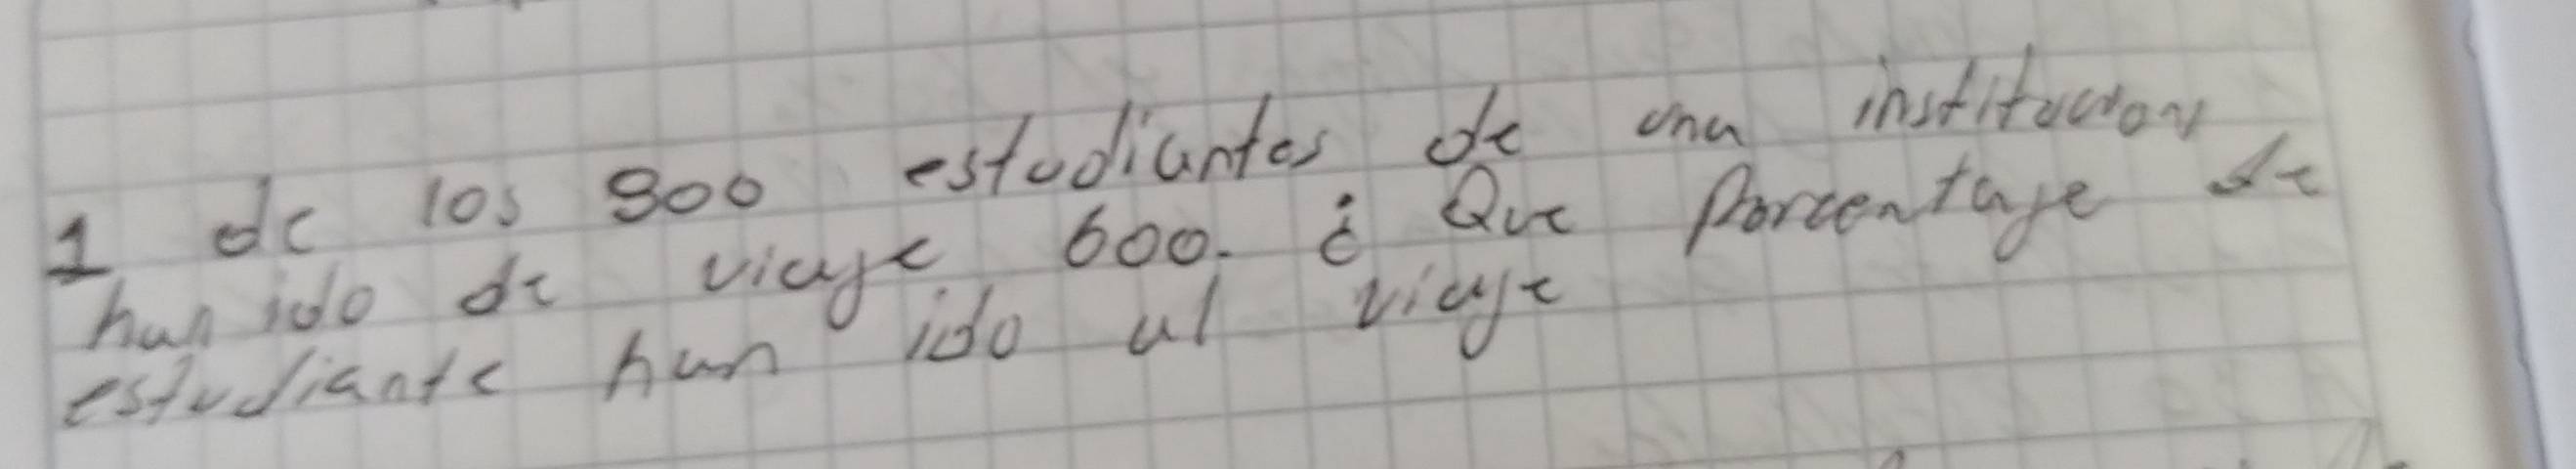 1 de los 800 estudiantes de una institucion
han ido de viaje 600. ¿ Que Porcentaje de
estudiante han ido al viaje